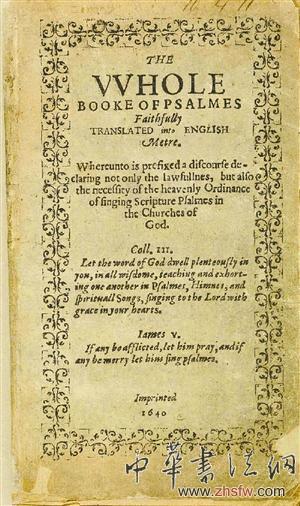 THE
VVHOLE
BOOKE OF PSALMES
Faithfully
TRANSLATED into ENGLISH
Metre.
Whereunto is prefixed a discourse de-
claring not only the lawfullnes, but also
the necessity of the heavenly Ordinance
of singing Scripture Psalmes in
the Churches of
God.
Coll. III.
Let the word of God dwell plenteously in
you, in all wisdome, teaching and exhort-
ing one another in Psalmes, Himnes, and
spirituall Songs, singing to the Lord with
grace in your hearts.
Iames V.
If any be afflicted, let him pray, and if
any be merry let him sing psalmes.
Imprinted
1640
中華书法網
www.zhsfw.com